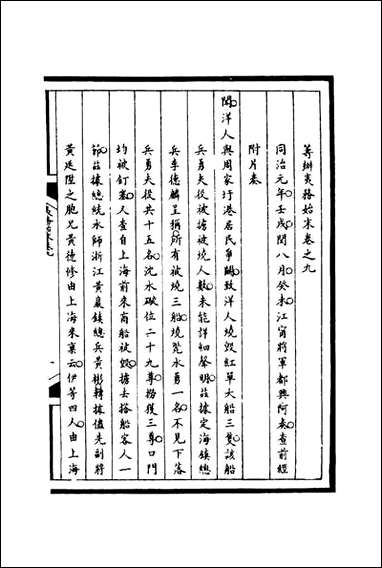 籌辦夷務始末卷之九
同治元年壬戌閏八月癸未江甯將軍都興阿奏查前經
附片奏
聞洋人與周家圩港居民爭鬭致洋人燒毀紅單大船三隻該船
兵勇夫役被擄被燒人數未能詳細聲明茲據定海鎮總
兵李德麟呈稱所有被燒三船燒斃水勇一名不見下落
兵勇夫役共十五名沈水礮位二十九尊撈獲三尊口門
均被釘塞又查自上海前來商船被毀擄去搭船客人一
節茲據總統水師浙江黃巖鎮總兵黃彬轉據儘先副將
黃廷陞之胞兄黃德修由上海來稟云伊等四人由上海